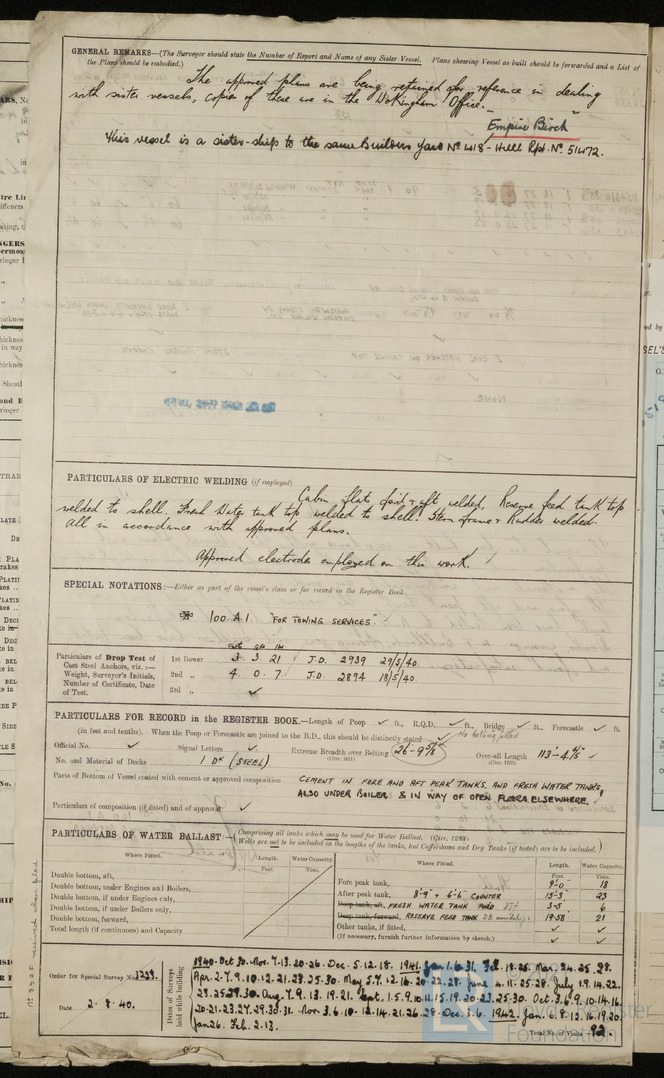 GENERAL REMARKS—(The Surveyor should state the Number of Report and Name of any Sister Vessel. Plans showing Vessel as built should be forwarded and a List of
the Plans should be embodied.)
The approved plans are being retained for reference in dealing
with sister vessels, copies of these are in the Wokingham Office.
"Empire Birch"
This vessel is a sister-ship to the same Builders Yard No 418 - Hull Rpt. No. 51472.
PARTICULARS OF ELECTRIC WELDING (if employed)
Cabin flats for'd & aft welded, Reserve feed tank top
welded to shell. Fresh Water tank top welded to shell. Stern frame & Rudder welded.
All in accordance with approved plans.
Approved electrodes employed on this work.
SPECIAL NOTATIONS:—Either as part of the vessel's class or for record in the Register Book
100 A1 "FOR TOWING SERVICES"
Particulars of Drop Test of
Cast Steel Anchors, viz.:—
Weight, Surveyor's Initials,
Number of Certificate, Date
of Test.
cwts qrs lbs
1st Bower 3. 3. 21 J.D. 2939 29/5/40.
2nd „ 4. 0. 7. J.D. 2894 18/5/40.
3rd „ ✓
PARTICULARS FOR RECORD in the REGISTER BOOK.—Length of Poop ✓ ft., R.Q.D. ✓ ft., Bridge ✓ ft., Forecastle ✓ ft.
(in feet and tenths). When the Poop or Forecastle are joined to the B.D., this should be distinctly stated ✓
No belting fitted
Official No. ✓ Signal Letters ✓ Extreme Breadth over Belting 26'-9 5/8" Over-all Length 113'-4.45' ✓
(Circ. 1611) (Circ. 1703)
No. and Material of Decks 1 DK (STEEL)
Parts of Bottom of Vessel coated with cement or approved composition CEMENT IN FORE AND AFT PEAK TANKS, AND FRESH WATER TANKS,
ALSO UNDER BOILER & IN WAY OF OPEN FLOORS ELSEWHERE.
Particulars of composition (if fitted) and of approval ✓
PARTICULARS OF WATER BALLAST.—(Comprising all tanks which may be used for Water Ballast. (Circ. 1284)
Wells are not to be included in the lengths of the tanks, but Cofferdams and Dry Tanks (if tested) are to be included.)
Where Fitted. Length. Water Capacity.
Feet. Tons.
Double bottom, aft,
Double bottom, under Engines and Boilers,
Double bottom, if under Engines only,
Double bottom, if under Boilers only,
Double bottom, forward,
Total length (if continuous) and Capacity
Where Fitted. Length. Water Capacity.
Feet. Tons.
Fore peak tank, 9'-0 18
After peak tank, 8'-9" + 6'-6" COUNTER 15-3 23
Deep tank, aft, FRESH WATER TANK FORD 3-5 6
Deep tank, forward, RESERVE FEED TANK 19.58 21
Other tanks, if fitted ✓ ✓
(If necessary, furnish further information by sketch.) ✓ ✓
Order for Special Survey No. 3233.
Date 2. 8. 40.
Dates of Surveys
held while building
1940. Oct. 30. Nov. 7. 13. 20. 26. Dec. 5. 12. 18. 1941. Jan. 1. 6. 31. Feb. 18. 25. Mar. 24. 25. 28.
Apr. 2. 7. 9. 10. 12. 21. 23. 25. 30. May 5. 7. 12. 16. 20. 22. 28. June 4. 11. 25. 28. July 1. 9. 14. 22.
23. 25. 29. 30. Aug. 7. 9. 13. 19. 21. Sept. 1. 5. 9. 10. 11. 15. 19. 20. 23. 25. 30. Oct. 3. 6. 9. 10. 14. 16.
20. 21. 23. 27. 29. 30. 31. Nov. 3. 6. 10. 12. 14. 21. 26. 28. Dec. 3. 6. 1942. Jan. 6. 8. 12. 16. 19. 20.
Jan 26. Feb. 2. 13.
Total No. of Visits 92.
Foundation